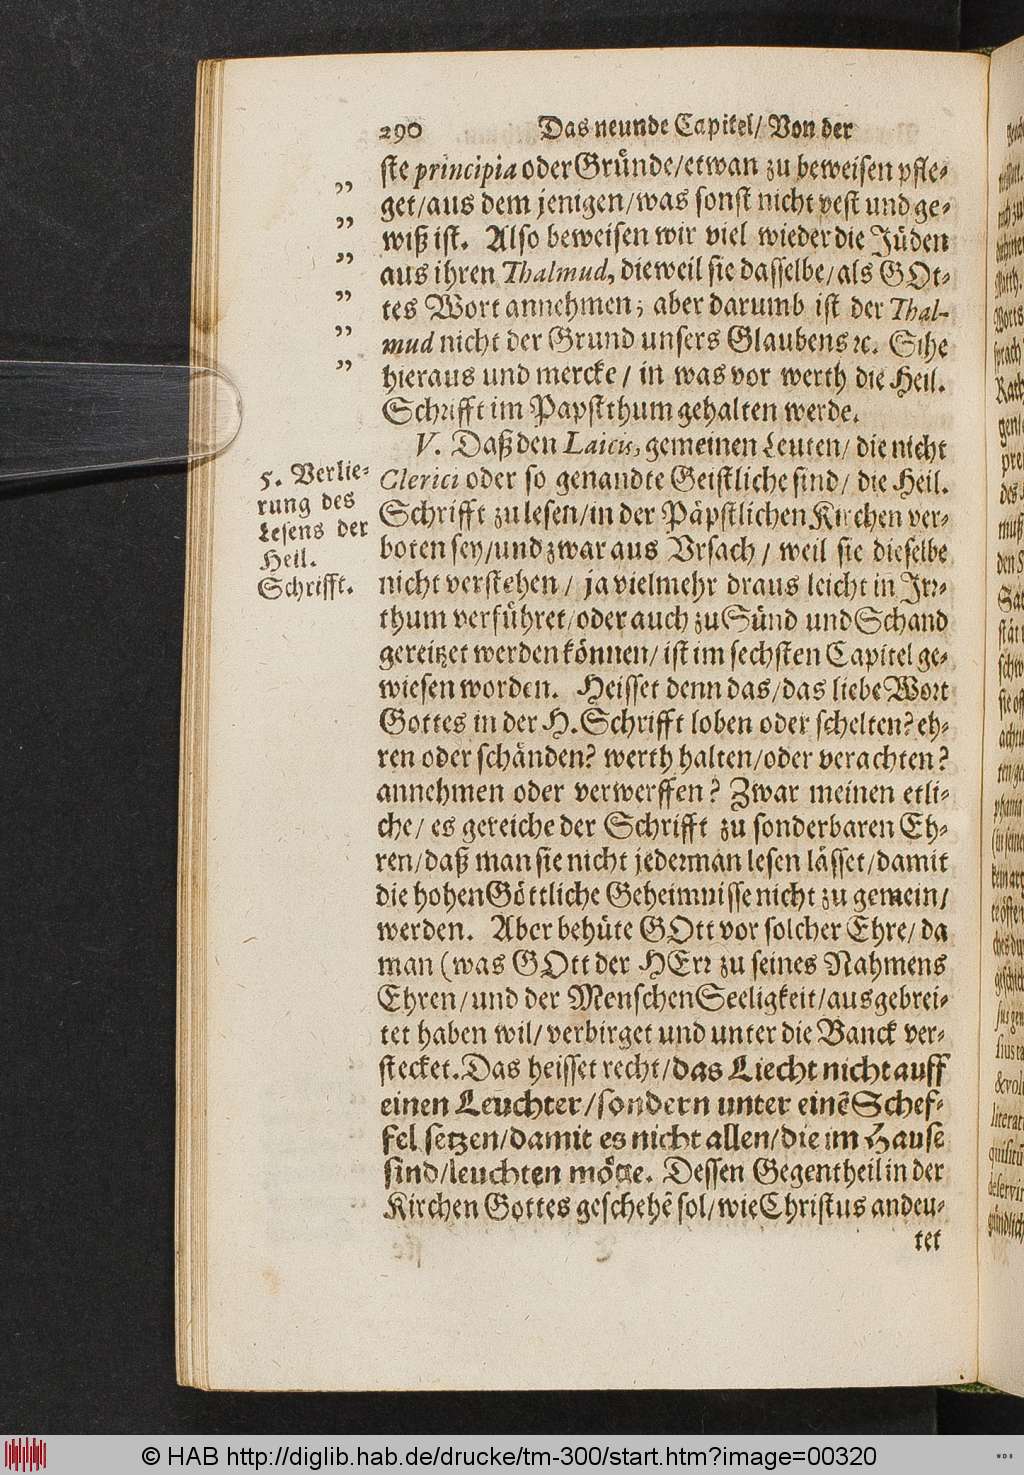 290 Das neunde Capitel/ Von der
ste principia oder Gründe/etwan zu beweisen pfle-
„ get/aus dem jenigen/was sonst nicht vest und ge-
„ wiß ist. Also beweisen wir viel wieder die Jüden
„ aus ihren Thalmud, dieweil sie dasselbe/als GOt-
„ tes Wort annehmen; aber darumb ist der Thal-
„ mud nicht der Grund unsers Glaubens ꝛc. Sihe
„ hieraus und mercke/ in was vor werth die Heil.
Schrifft im Papstthum gehalten werde.
V. Daß den Laicis, gemeinen Leuten/ die nicht
Clerici oder so genandte Geistliche sind/ die Heil.
Schrifft zu lesen/in der Päpstlichen Kirchen ver-
boten sey/und zwar aus Ursach/ weil sie dieselbe
nicht verstehen/ ja vielmehr draus leicht in Irr-
thum verführet/oder auch zu Sünd und Schand
gereitzet werden können/ ist im sechsten Capitel ge-
wiesen worden. Heisset denn das/das liebe Wort
Gottes in der H. Schrifft loben oder schelten? eh-
ren oder schänden? werth halten/oder verachten?
annehmen oder verwerffen? Zwar meinen etli-
che/ es gereiche der Schrifft zu sonderbaren Eh-
ren/daß man sie nicht jederman lesen lässet/damit
die hohen Göttliche Geheimnisse nicht zu gemein/
werden. Aber behüte GOtt vor solcher Ehre/ da
man (was GOtt der HErr zu seines Nahmens
Ehren/und der Menschen Seeligkeit/ausgebrei-
tet haben wil/ verbirget und unter die Banck ver-
stecket. Das heisset recht/das Liecht nicht auff
einen Leuchter/sondern unter einē Schef-
fel setzen/damit es nicht allen/die im Hause
sind/leuchten möge. Dessen Gegentheil in der
Kirchen Gottes geschehē sol/wie Christus andeu-
tet
5. Verlie-
rung des
Lesens der
Heil.
Schrifft.
© HAB http://diglib.hab.de/drucke/tm-300/start.htm?image=00320